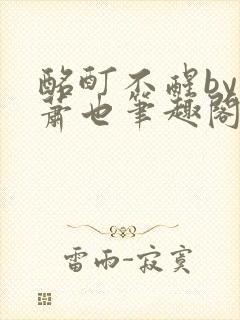 酩酊不醒by
萧也笔趣阁
雷雨-寂寞